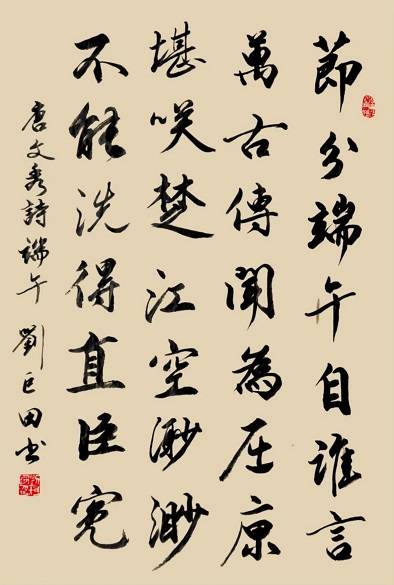 節分端午自誰言
萬古傳聞為屈原
堪咲楚江空渺渺
不能洗得直臣冤
唐文秀詩端午
劉巨田书